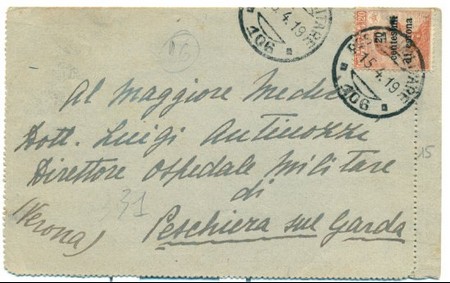 Al Maggiore Medico
Dott. Luigi Antinozzi
Direttore Ospedale Militare
di
Peschiera sul Garda
(Verona)
31
15
20
centesimi
di corona
15.4.19
106
15.4.19
106